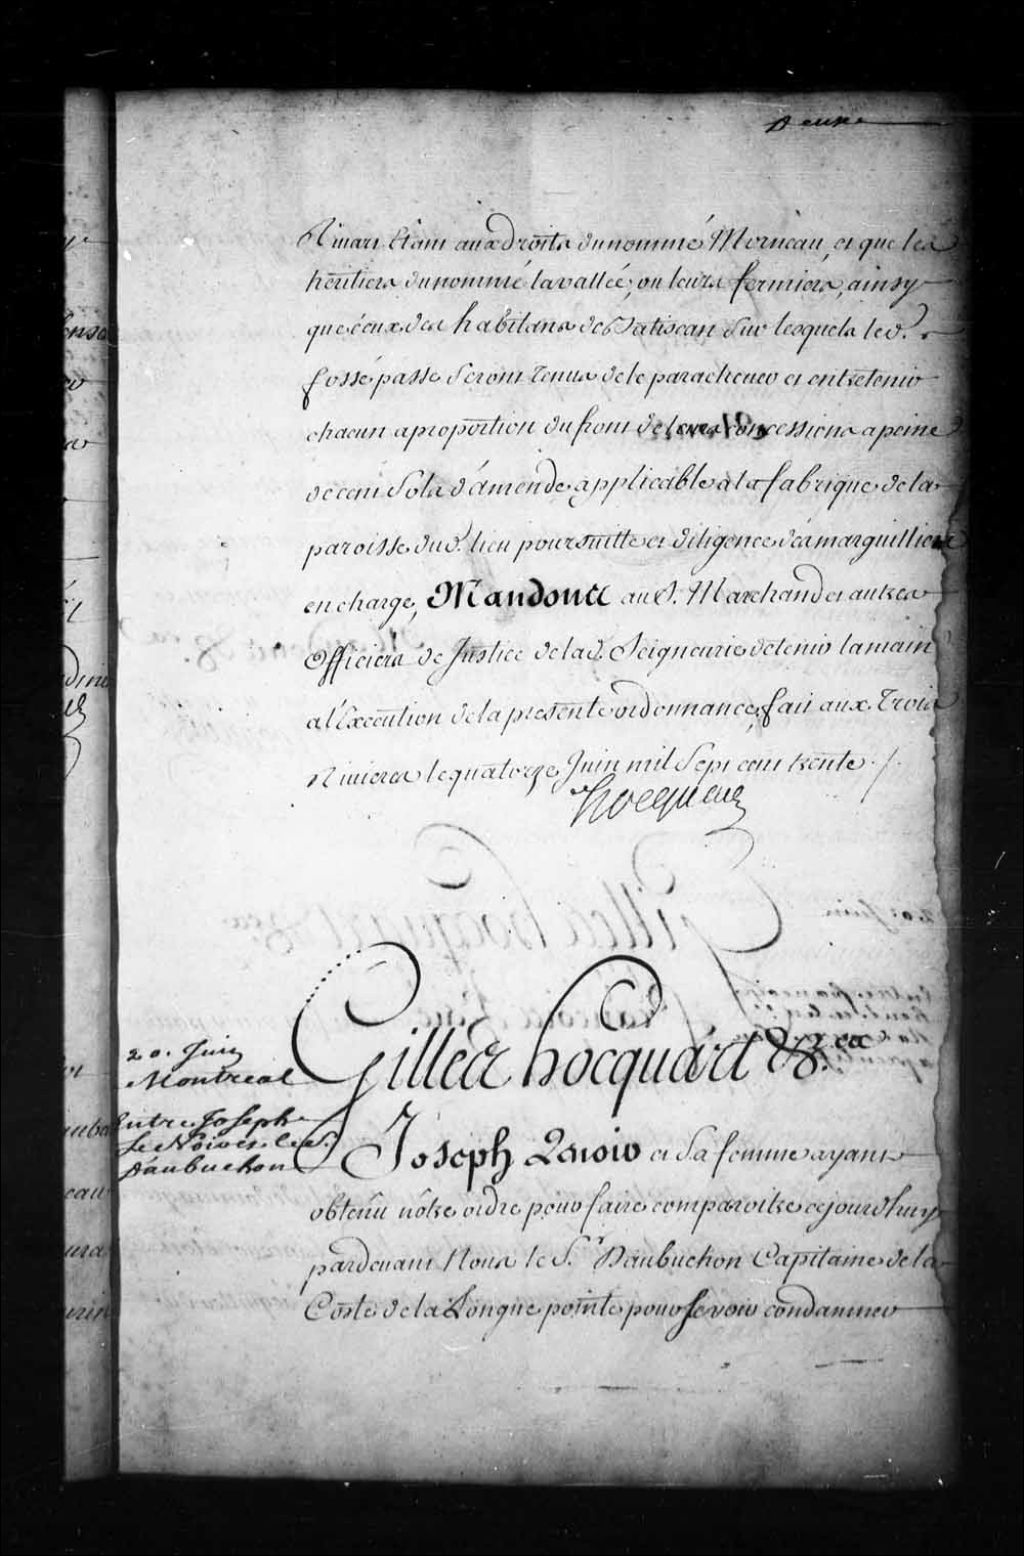 Deux
Rivart Etant aux Droits du nommé Morneau, et que les
héritiers du nommé lavallée, ou leurs fermiers, ainsy
que ceux des habitans de Batiscan sur lesquels led.
fossé passe seront tenus de le parachever et entretenir
chacun a proportion du front de leurs Concessions a peine
de cent sols d'amende applicable a la fabrique de la
paroisse dud. lieu poursuitte et diligence des marguilliers
en charge, Mandons au S. Marchand et autres
Officiers de Justice de lad. Seigneurie de tenir la main
a l'Execution de la presente ordonnance, fait aux Trois
Rivieres le quatorze Juin mil Sept cent trente ./.
Hocquart
20. Juin
Montreal
Gilles hocquart &c.ca
Entre Joseph
Le Noir et le S.
Daubuchon
Joseph Lenoir et Sa femme ayant
obtenû nôtre ordre pour faire comparoitre cejourd'huy
pardevant Nous le S.r Daubuchon Capitaine de la
Coste de la Longue pointe pour se voir condamner